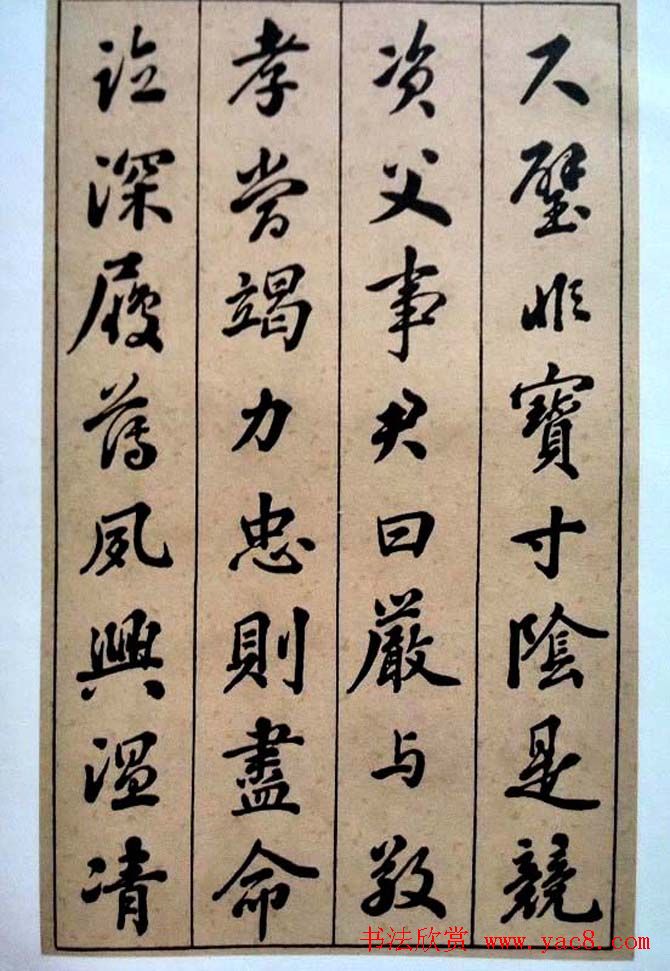 尺璧非寶寸陰是競
資父事君曰嚴与敬
孝當竭力忠則盡命
臨深履薄夙興溫凊
书法欣赏 www.yac8.com